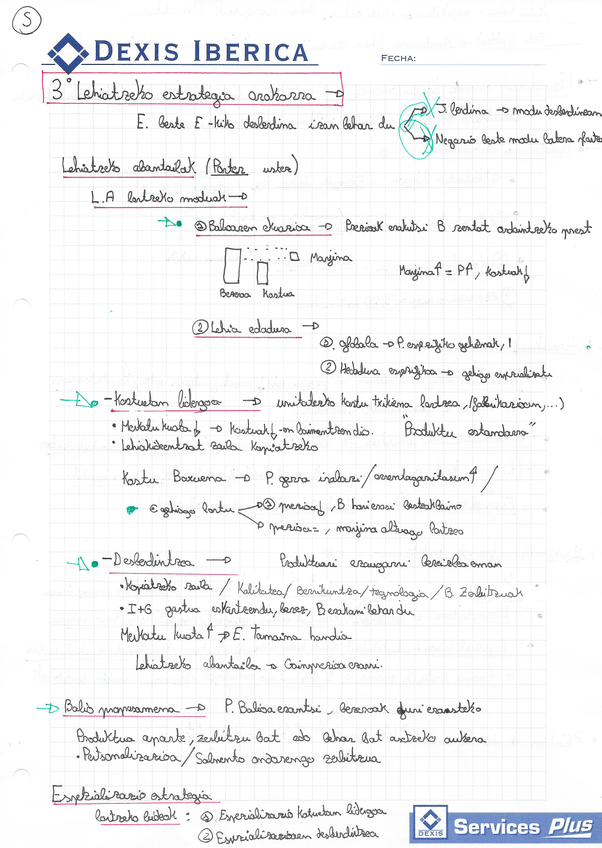 5
DEXIS IBERICA
FECHA:
3º Lehiatzeko estrategia orokorra →
J. berdina → modu desberdinean
E. beste E-kiko desberdina izan behar du
Negozio beste modu batera
Lehiatzeko abantailak (Porter ustez)
L.A lortzeko moduak →
① Balioaren ekuazioa → Bezeroak erakutsi B zenbat ordaintzeko prest
Marjina
Marjina↑ = P↑, Kostuak↓
Bezeroa Kostua
② Lehia edadura →
①. globala → P. espezifiko gehienak, !
② Hedadura espezifikoa → gehiago espezializatu
- Kostuetan lidergoa → unitateko kostu txikiena lortzea,
• Merkatu kuota → Kostuak↓-en baimentzen dio. "Produktu estandarra"
• Lehiakideentzat zaila kopiatzeko
Kostu Baxuena → P. gerra irabazi / errentagarritasun↑ /
€ gehiago lortu → ① prezioa↓, B beste
→ prezioa =, marjina altuago lortzeo
- Desberdintzea → Produktuari ezaugarri bereizlea eman
• Kopiatzeko zaila / Kalitatea / Berrikuntza / teknologia / B. Zerbitzuak
• I+G gastua eskatzen du, beraz, B behar du
Merkatu kuota↑ → E. Tamaina handia
Lehiatzeko abantaila → Gainprezioa ezarri.
→ Balio proposamena → P. Balioa erantsi, bezeroak
Produktua aparte, zerbitzu bat edo behar bat asetzeko aukera
• Pertsonalizazioa / Salmenta ondorengo zerbitzua
Espezializazio estrategia
lortzeko bideak: ① Espezializazio kostuetan lidergoa
② Espezializazioaren desberdintzea
DEXIS
Services Plus